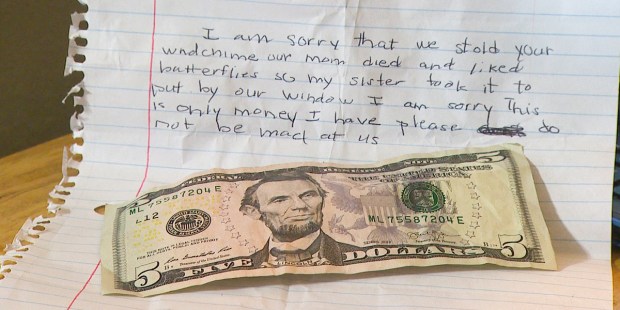 I am sorry that we stold your
windchime our mom died and liked
batterflies so my sister took it to
put by our window I am sorry This
is only money I have please do
not be mad at us
FEDERAL RESERVE NOTE
THE UNITED STATES
ML 75587204 E
L12
ML 75587204 E
LINCOLN
5 FIVE DOLLARS 5